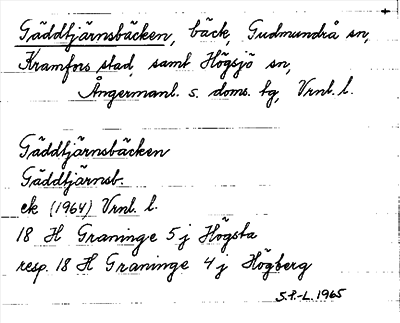 Gäddtjärnsbäcken, bäck, Gudmundrå sn,
Kramfors stad, samt Högsjö sn,
Ångermanl. s. doms. tg, Vrnl. l.
Gäddtjärnsbäcken
Gäddtjärnsb.
ek (1964) Vrnl. l.
18 H Graninge 5 j Högsta
resp. 18 H Graninge 4 j Högberg
S.P-L. 1965